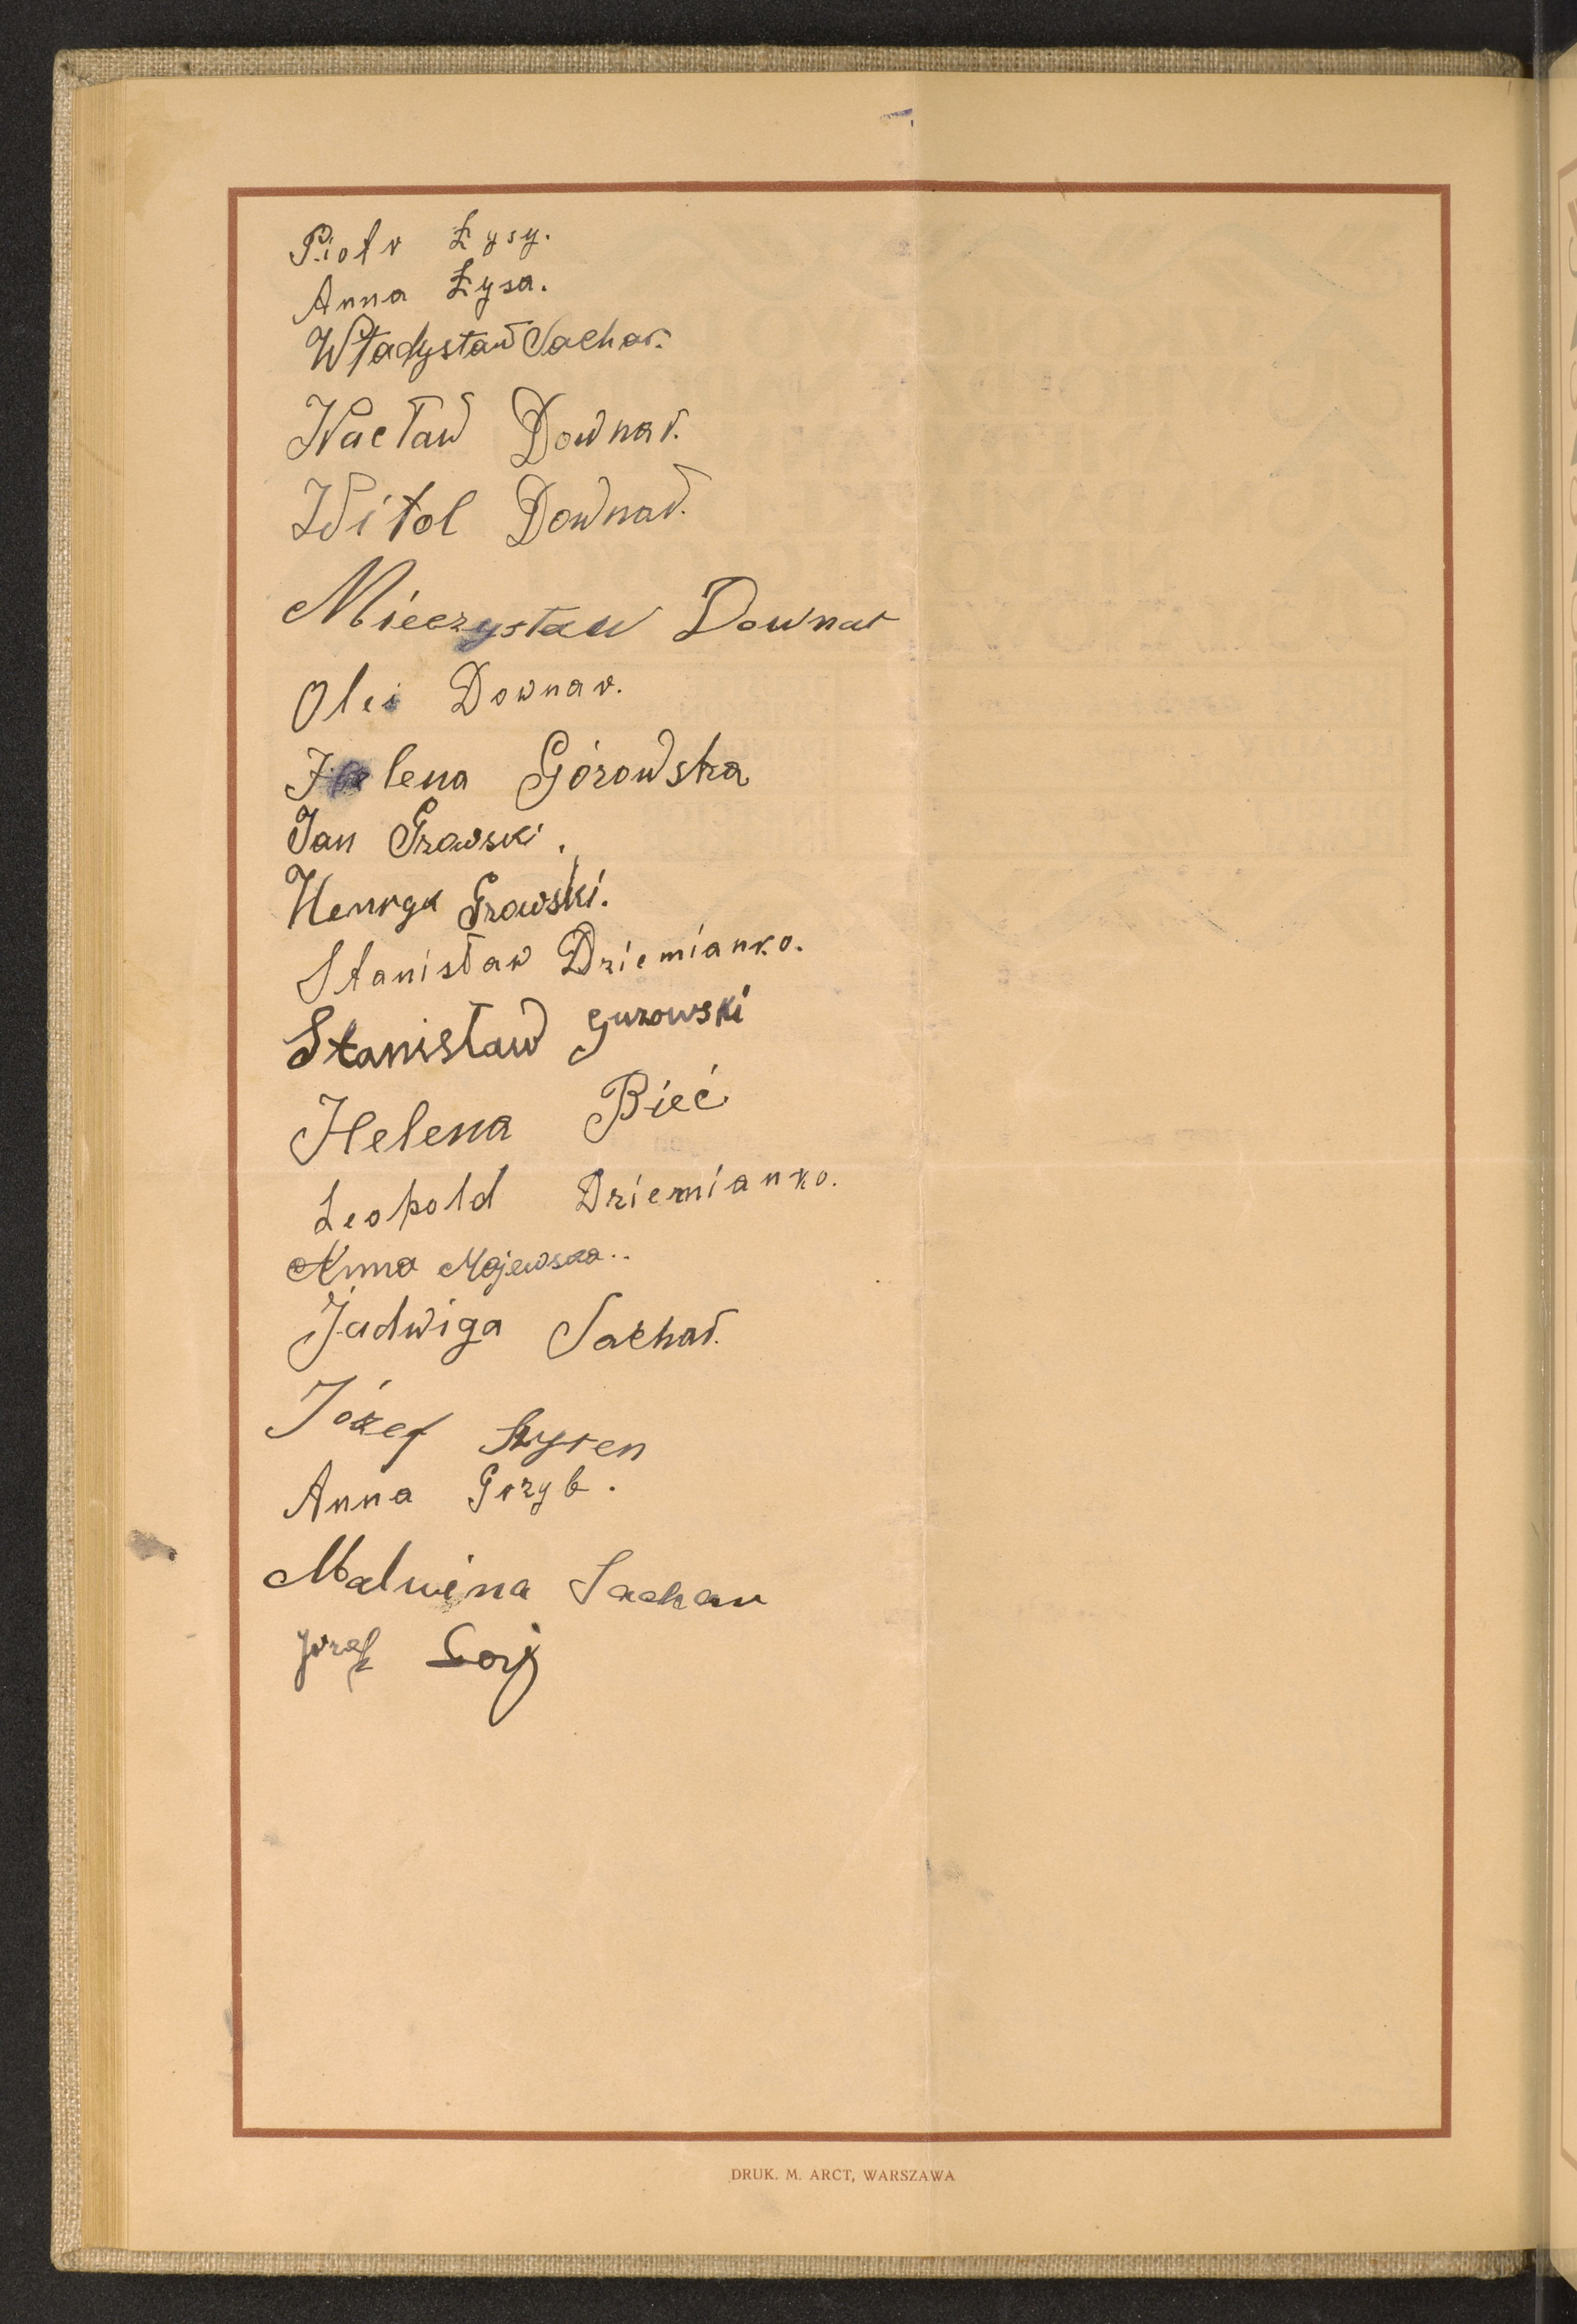 Piotr Łysy.
Anna Łysa.
Władysław Sachar.
Wacław Downar.
Witol Downar.
Mieczysław Downar
Olei Downar.
Helena Górowska
Jan Growski.
Henryk Growski.
Stanisław Dziemianko.
Stanisław Gurowski
Helena Bieć
Leopold Dziemianko.
Anna Majewska..
Jadwiga Sachar.
Józef
Anna Grzyb.
Malwina Sachar
Józef
DRUK. M. ARCT, WARSZAWA